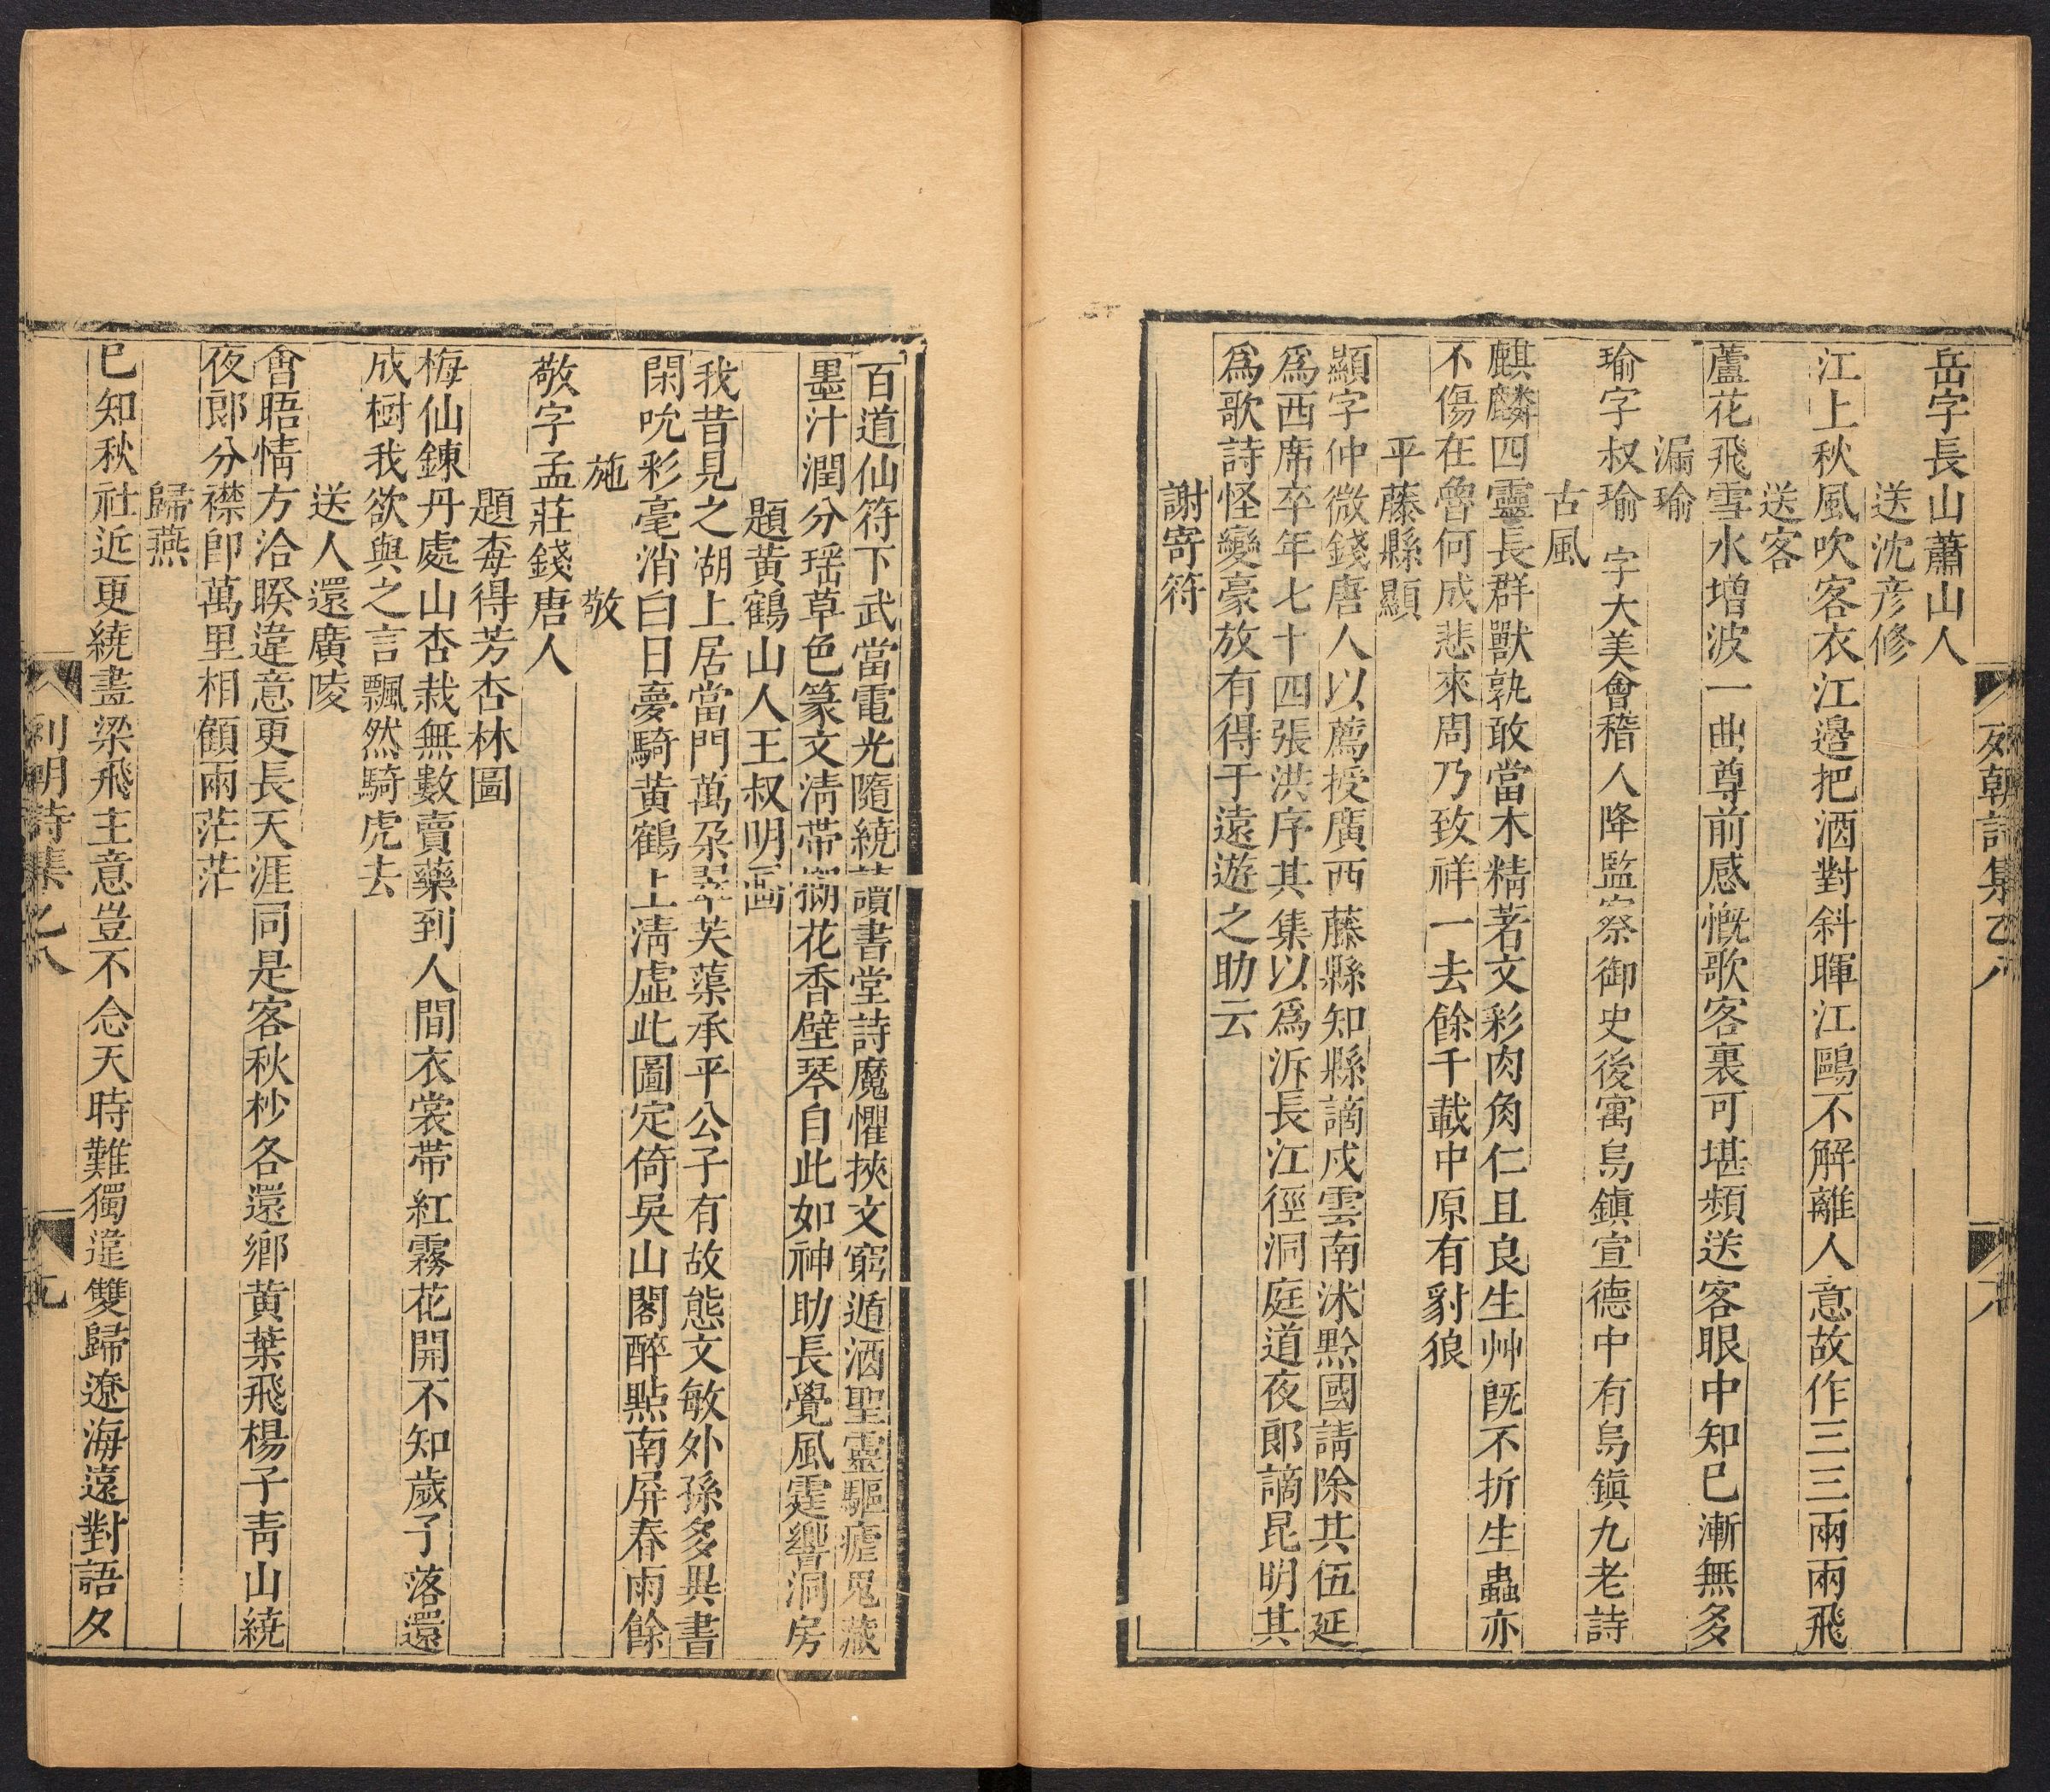 岳字長山蕭山人
送沈彦修
江上秋風吹客衣江邉把酒對斜暉江鷗不解離人意故作三三兩兩飛
送客
蘆花飛雪水增波一曲尊前感慨歌客裏可堪頻送客眼中知己漸無多
漏瑜
瑜字叔瑜一字大美會稽人降監察御史後寓烏鎮宣德中有烏鎮九老詩
古風
麒麟四靈長群獸孰敢當木精著文彩肉角仁且良生艸旣不折生蟲亦
不傷在魯何成悲來周乃致祥一去餘千載中原有豺狼
平藤縣顯
顯字仲微錢唐人以薦授廣西藤縣知縣謫戍雲南沐黔國請除其伍延
爲西席卒年七十四張洪序其集以爲泝長江徑洞庭道夜郎謫昆明其
爲歌詩怪變豪放有得于遠遊之助云
謝寄符
百道仙符下武當電光隨繞讀書堂詩魔懼挾文窮遁酒聖靈驅瘧鬼藏
墨汁潤分瑶草色篆文淸帯御花香壁琴自此如神助長覺風霆響洞房
題黃鶴山人王叔明画
我昔見之湖上居當門萬朶翠芙蕖承平公子有故態文敏外孫多異書
閑吮彩毫消白日夢騎黃鶴上淸虛此圖定倚吳山閣醉點南屏春雨餘
施 敬
敬字孟莊錢唐人
題夲得芳杏林圖
梅仙鍊丹處山杏栽無數賣藥到人間衣裳帯紅霧花開不知歲子落還
成樹我欲與之言飄然騎虎去
送人還廣陵
會晤情方洽睽違意更長天涯同是客秋杪各還鄉黃葉飛楊子靑山繞
夜郎分襟卽萬里相顧兩茫茫
歸燕
已知秋社近更繞畫梁飛主意豈不念天時難獨違雙歸遼海遠對語夕
列朝詩集乙八
八
列朝詩集 乙八
九